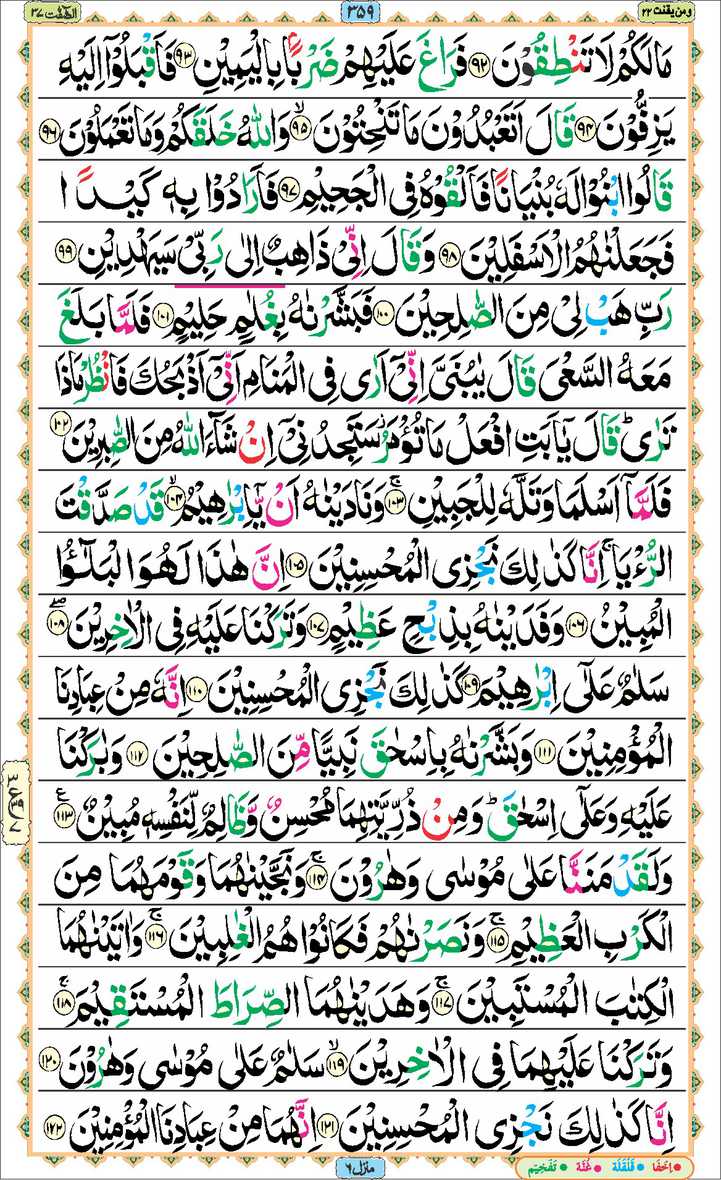 ومن يقنت ٢٣ ٣٥٩ الصّٰٓفّٰت ٣٧
مَالَكُمْ لَا تَنْطِقُوْنَ ﴿۹۲﴾ فَرَاغَ عَلَيْهِمْ ضَرْبًاۢ بِالْيَمِيْنِ ﴿۹۳﴾ فَاَقْبَلُوْۤا اِلَيْهِ
يَزِفُّوْنَ ﴿۹۴﴾ قَالَ اَتَعْبُدُوْنَ مَا تَنْحِتُوْنَ ﴿۹۵﴾ۙ وَاللّٰهُ خَلَقَكُمْ وَمَا تَعْمَلُوْنَ ﴿۹۶﴾
قَالُوا ابْنُوْا لَهٗ بُنْيَانًا فَاَلْقُوْهُ فِى الْجَحِيْمِ ﴿۹۷﴾ فَاَرَادُوْا بِهٖ كَيْدًا
فَجَعَلْنٰهُمُ الْاَسْفَلِيْنَ ﴿۹۸﴾ وَقَالَ اِنِّىْ ذَاهِبٌ اِلٰى رَبِّىْ سَيَهْدِيْنِ ﴿۹۹﴾
رَبِّ هَبْ لِىْ مِنَ الصّٰلِحِيْنَ ﴿۱۰۰﴾ فَبَشَّرْنٰهُ بِغُلٰمٍ حَلِيْمٍ ﴿۱۰۱﴾ فَلَمَّا بَلَغَ
مَعَهُ السَّعْىَ قَالَ يٰبُنَىَّ اِنِّىْۤ اَرٰى فِى الْمَنَامِ اَنِّىْۤ اَذْبَحُكَ فَانْظُرْ مَاذَا
تَرٰى ؕ قَالَ يٰۤاَبَتِ افْعَلْ مَا تُؤْمَرُ ۫ سَتَجِدُنِىْۤ اِنْ شَآءَ اللّٰهُ مِنَ الصّٰبِرِيْنَ ﴿۱۰۲﴾
فَلَمَّاۤ اَسْلَمَا وَتَلَّهٗ لِلْجَبِيْنِ ﴿۱۰۳﴾ۚ وَنَادَيْنٰهُ اَنْ يّٰۤاِبْرٰهِيْمُ ﴿۱۰۴﴾ۙ قَدْ صَدَّقْتَ
الرُّءْيَا ۚ اِنَّا كَذٰلِكَ نَجْزِى الْمُحْسِنِيْنَ ﴿۱۰۵﴾ اِنَّ هٰذَا لَهُوَ الْبَلٰٓـؤُا
الْمُبِيْنُ ﴿۱۰۶﴾ وَفَدَيْنٰهُ بِذِبْحٍ عَظِيْمٍ ﴿۱۰۷﴾ وَتَرَكْنَا عَلَيْهِ فِى الْاٰخِرِيْنَ ﴿۱۰۸﴾ۖ
سَلٰمٌ عَلٰٓى اِبْرٰهِيْمَ ﴿۱۰۹﴾ كَذٰلِكَ نَجْزِى الْمُحْسِنِيْنَ ﴿۱۱۰﴾ اِنَّهٗ مِنْ عِبَادِنَا
الْمُؤْمِنِيْنَ ﴿۱۱۱﴾ وَبَشَّرْنٰهُ بِاِسْحٰقَ نَبِيًّا مِّنَ الصّٰلِحِيْنَ ﴿۱۱۲﴾ وَبٰرَكْنَا
عَلَيْهِ وَعَلٰٓى اِسْحٰقَ ؕ وَمِنْ ذُرِّيَّتِهِمَا مُحْسِنٌ وَّظَالِمٌ لِّنَفْسِهٖ مُبِيْنٌ ﴿۱۱۳﴾
وَلَقَدْ مَنَنَّا عَلٰى مُوْسٰى وَهٰرُوْنَ ﴿۱۱۴﴾ۚ وَنَجَّيْنٰهُمَا وَقَوْمَهُمَا مِنَ
الْكَرْبِ الْعَظِيْمِ ﴿۱۱۵﴾ۚ وَنَصَرْنٰهُمْ فَكَانُوْا هُمُ الْغٰلِبِيْنَ ﴿۱۱۶﴾ۚ وَاٰتَيْنٰهُمَا
الْكِتٰبَ الْمُسْتَبِيْنَ ﴿۱۱۷﴾ۚ وَهَدَيْنٰهُمَا الصِّرَاطَ الْمُسْتَقِيْمَ ﴿۱۱۸﴾ۚ
وَتَرَكْنَا عَلَيْهِمَا فِى الْاٰخِرِيْنَ ﴿۱۱۹﴾ۙ سَلٰمٌ عَلٰى مُوْسٰى وَهٰرُوْنَ ﴿۱۲۰﴾
اِنَّا كَذٰلِكَ نَجْزِى الْمُحْسِنِيْنَ ﴿۱۲۱﴾ اِنَّهُمَا مِنْ عِبَادِنَا الْمُؤْمِنِيْنَ ﴿۱۲۲﴾
منزل ٦
اخفا قلقلة غنة تفخيم